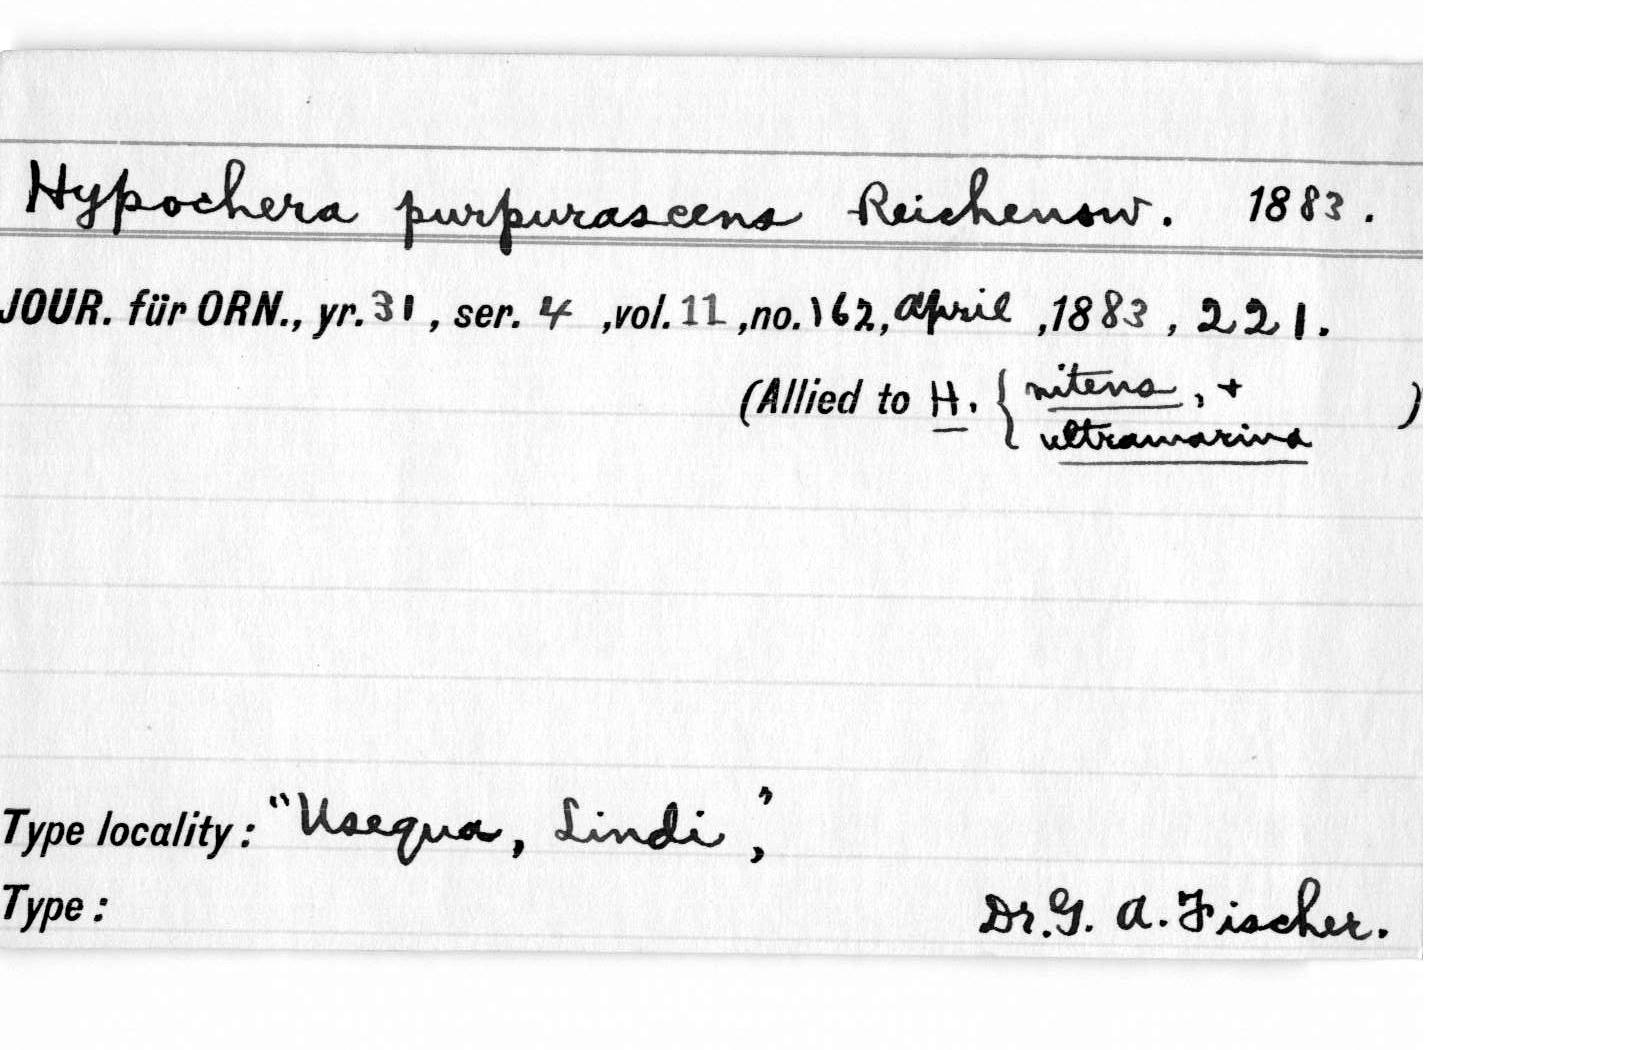 Hypochera purpurascens Reichenow. 1883.
JOUR. für ORN., yr. 31, ser. 4, vol. 11, no. 162, April, 1883, 221.
(Allied to H. { nitens, +
ultramarina )
Type locality: "Usequa, Lindi",
Type: Dr. G. A. Fischer.